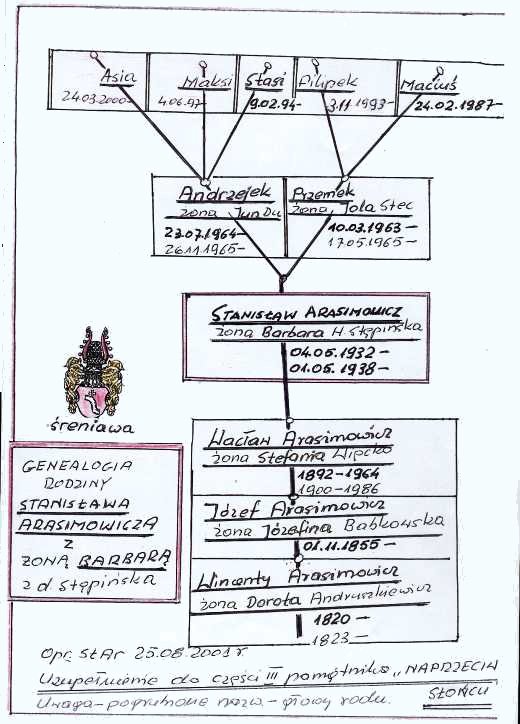 Asia Maksi Stasi Filipek Maciuś
24.03.2000- 4.06.97- 9.02.94- 3.11.1993- 24.02.1987-
Andrzejek Przemek
żona Jun Du żona Jola Stec
23.07.1964- 10.03.1963-
26.11.1965- 17.05.1965-
STANISŁAW ARASIMOWICZ
żona Barbara H. Stępińska
04.05.1932 -
01.05.1938 -
śreniawa
Wacław Arasimowicz
żona Stefania Więcko
1892-1964
1900-1986
Józef Arasimowicz
żona Józefina Babkowska
01.11.1855 -
Wincenty Arasimowicz
żona Dorota Andruszkiewicz
1820 -
1823 -
GENEALOGIA
RODZINY
STANISŁAWA
ARASIMOWICZA
Z
ŻONĄ BARBARĄ
z d. Stępińska
Opr. StAr 25.08.2001 r
Uzupełnienie do części III pamiętnika „NAPRZECIW
SŁOŃCU
Uwaga - pogrubione nazw. - głowy rodu.